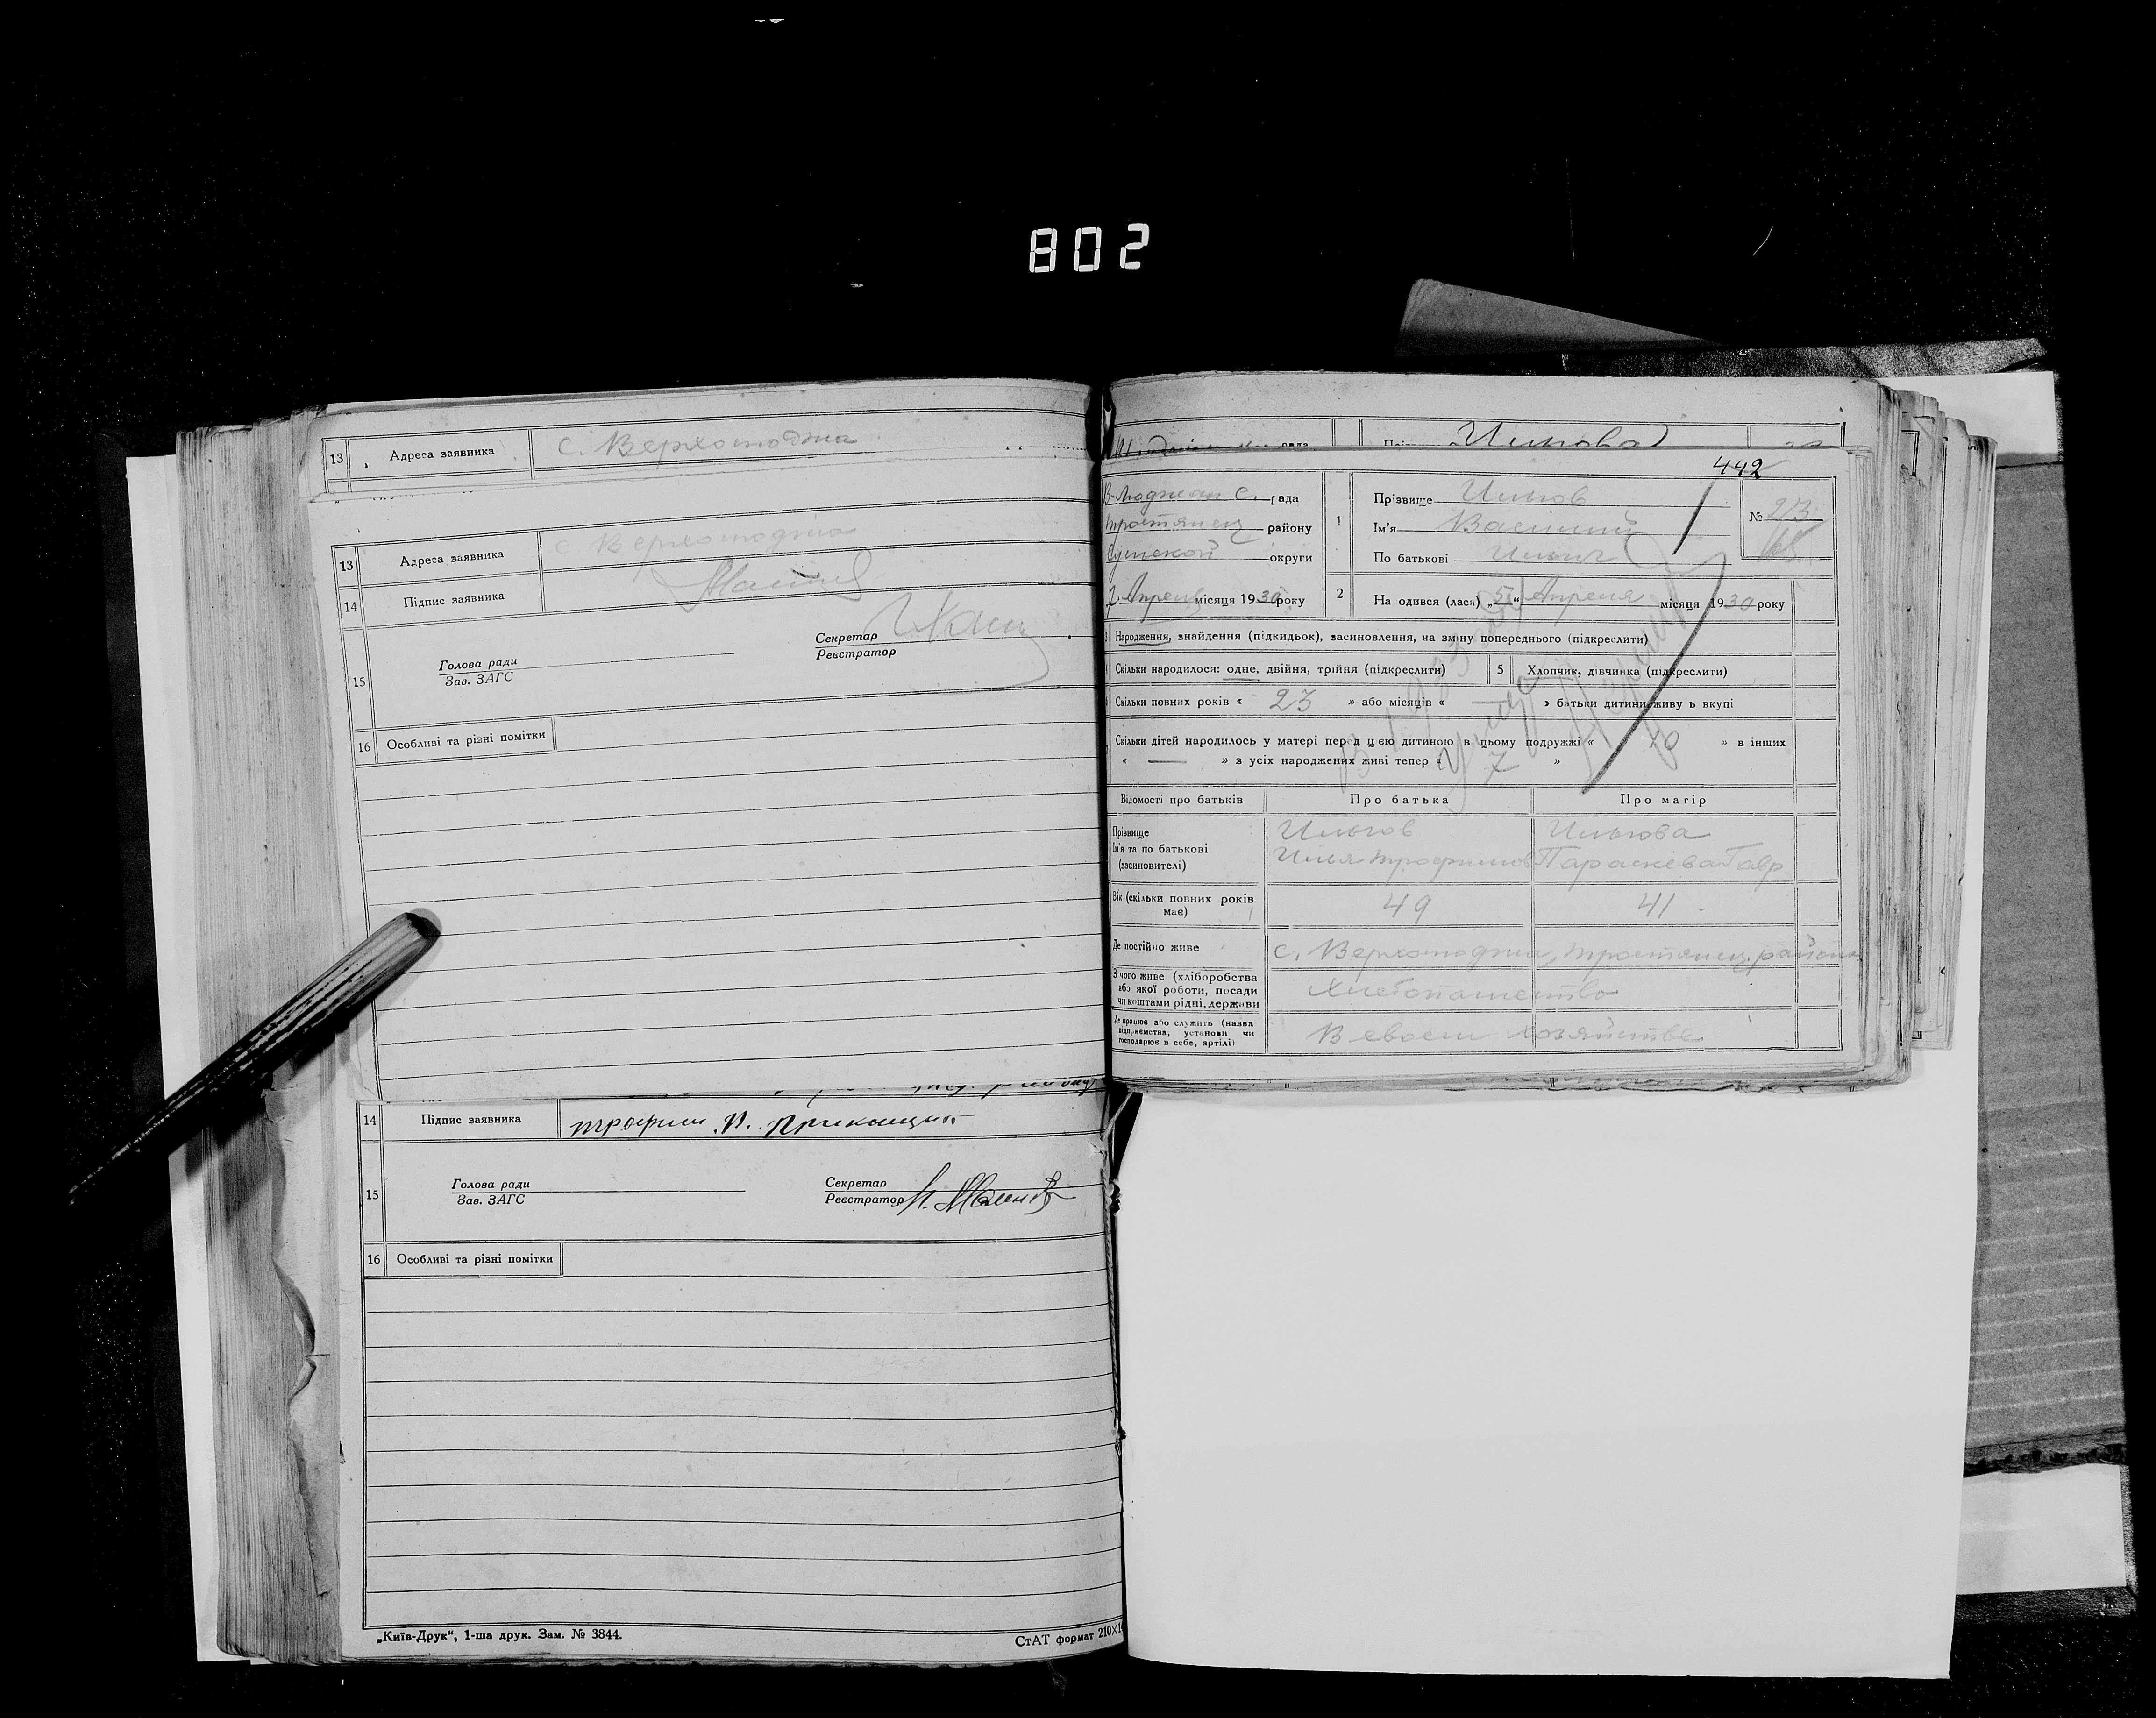 802
13 Адреса заявника с. Верхолюджа
13 Адреса заявника с Верхолюджа
14 Підпис заявника
15 Голова ради
Зав. ЗАГС
Секретар
Реєстратор
16 Особливі та різні помітки
14 Підпис заявника трофим И.
15 Голова ради
Зав. ЗАГС
Секретар
Реєстратор
16 Особливі та різні помітки
„Київ-Друк“, 1-ша друк. Зам. № 3844.
СтАТ формат 210×1
рада
442
В-Люджан с. рада
Тростянец району
Сумской округи
7 Апреля місяця 1930 року
1 Прізвище Ильков
Ім'я Василий
По батькові Ильич
№ 273
2 На одився (лась) „5“ Апреля місяця 1930 року
Народження, знайдення (підкидьок), засиновлення, на зміну попереднього (підкреслити)
Скільки народилося: одне, двійня, трійня (підкреслити) 5 Хлопчик, дівчинка (підкреслити)
Скільки повних років « 23 » або місяців « — » батьки дитини живуть вкупі
Скільки дітей народилось у матері перед цією дитиною в цьому подружжі « 10 » в інших
« — » з усіх народжених живі тепер « 7 »
Відомості про батьків Про батька Про матір
Прізвище Ильков Илькова
Ім'я та по батькові Илья Трофимов Параскева Гавр
(засиновителі)
Вік (скільки повних років 49 41
має)
Де постійно живе с. Верхолюджа, Тростянец. района
З чого живе (хліборобства
або якої роботи, посади Хлебопашество
чи коштами рідні, держави
Де працює або служить (назва
підприємства, установи чи В своем хозяйстве
господарює в себе, артілі)